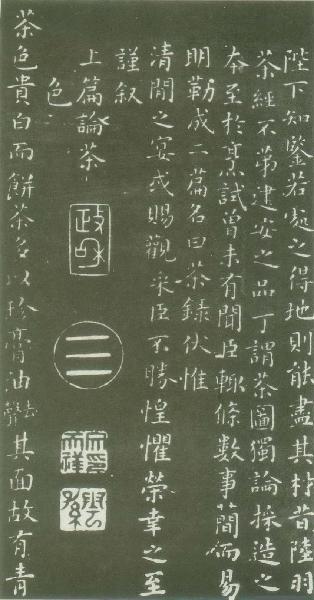 陛下知鑒若處之得地則能盡其材昔陸羽
茶經不第建安之品丁謂茶圖獨論採造之
本至於烹試曾未有聞臣輒條數事簡而易
明勒成二篇名曰茶錄伏惟
清閒之宴或賜觀采臣不勝惶懼榮幸之至
謹叙
上篇論茶
色
政和
茶色貴白而餅茶多以珍膏油去聲其面故有青